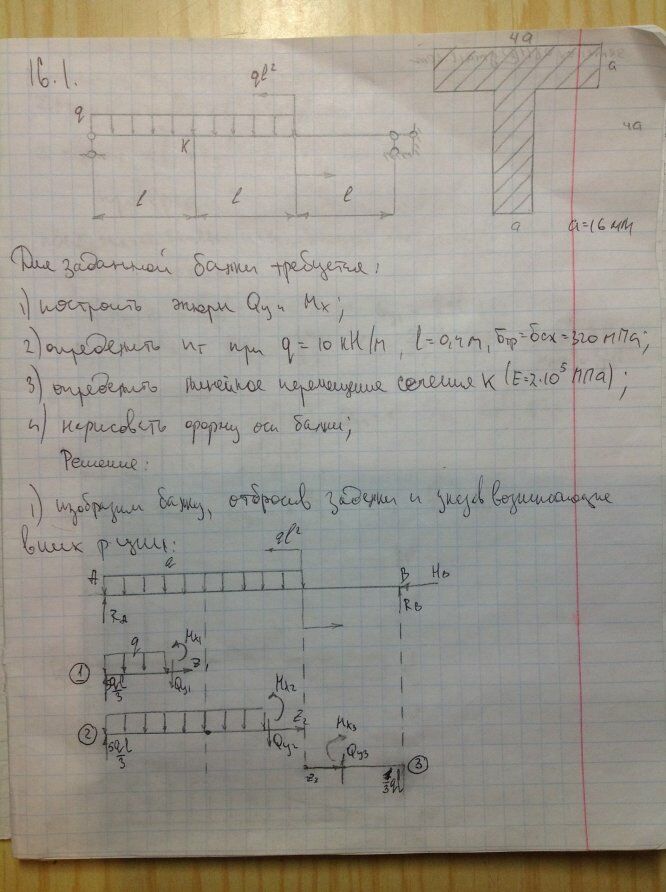 16.1.
4a
a
ql²
q
4a
K
l l l
a
a=16 мм
Для заданной балки требуется:
1) построить эпюры Qy и Mx;
2) определить nт при q = 10 кН/м, l = 0,4 м, σтр = σсж = 320 мПа;
3) определить линейное перемещение сечения K (E = 2·10⁵ мПа);
4) нарисовать форму оси балки;
Решение:
1) изобразим балку, отбросив заделки и указав возникающие
в них реакции:
ql²
A q B HB
RA RB
q Mx1
1 5ql/3 Qy1 z1
Mx2
2 5ql/3 Qy2 z2
Mx3
Qy3
z3 1/3 ql 3